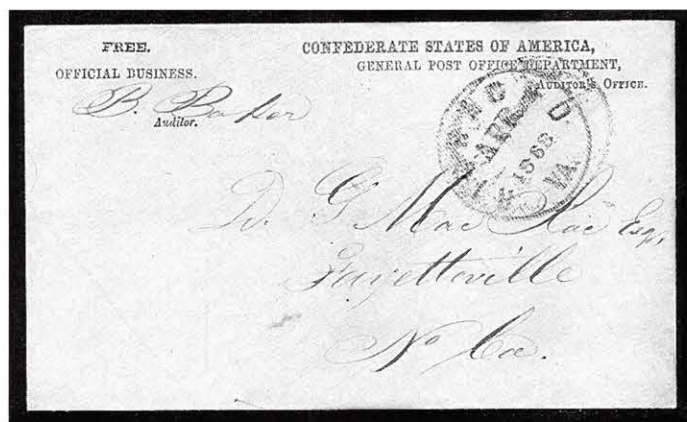 FREE.
OFFICIAL BUSINESS.
B. Baker
Auditor.
CONFEDERATE STATES OF AMERICA,
GENERAL POST OFFICE DEPARTMENT,
Auditor's Office.
RICHMOND
APR
1863
VA.
D. G. MacRae Esq,
Fayetteville
No Ca.